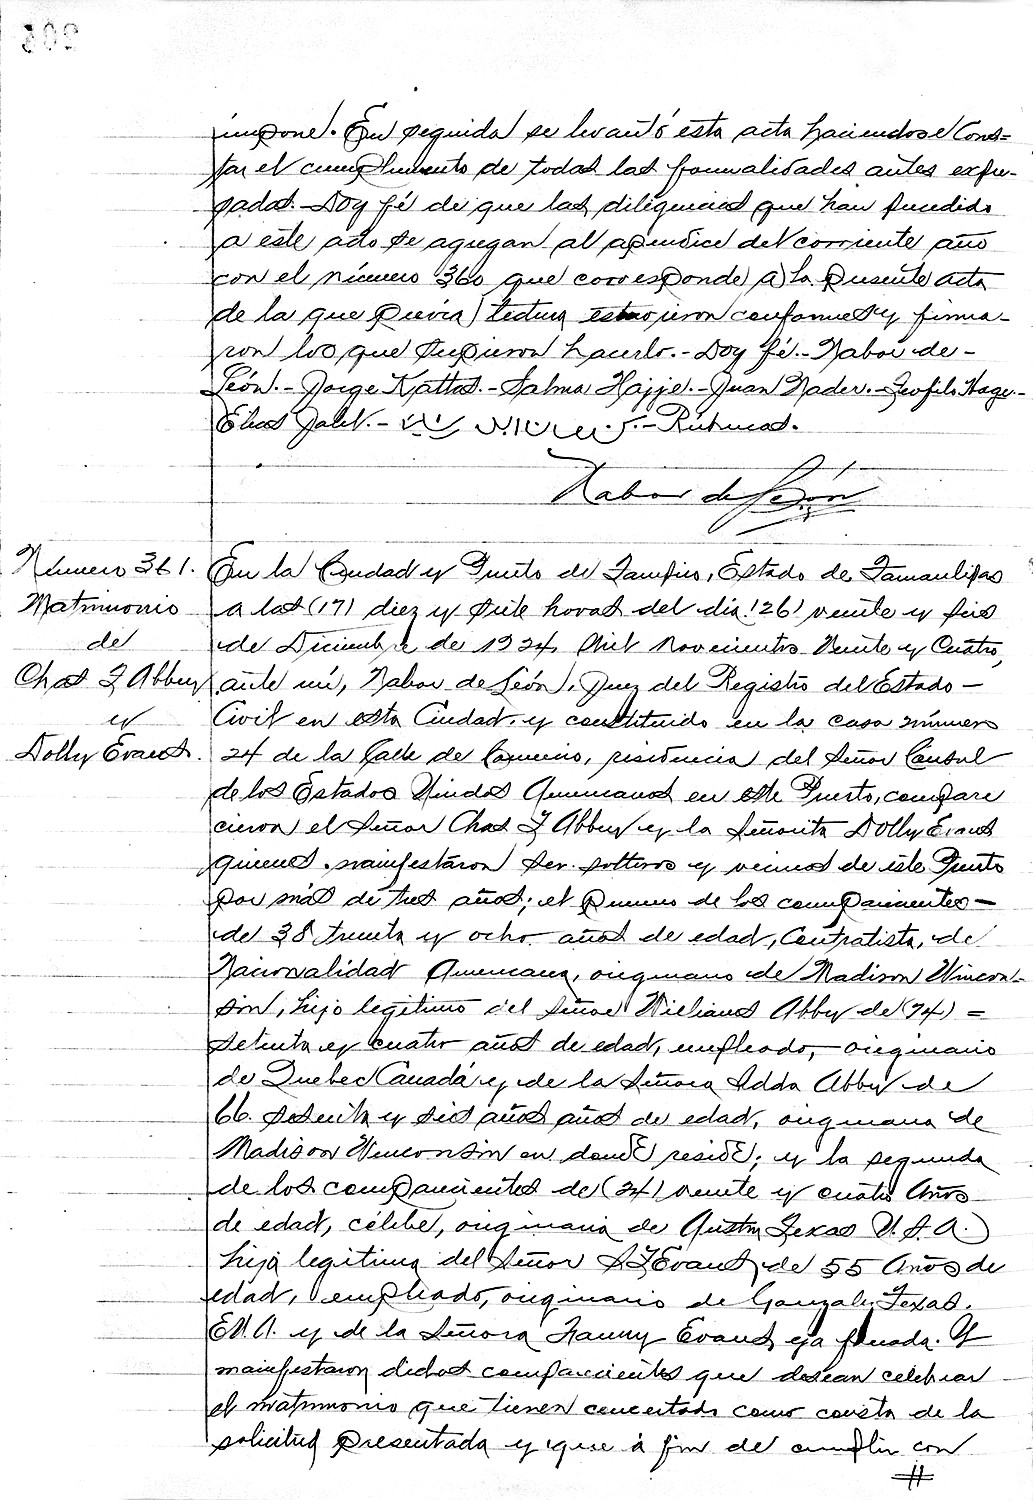 205
impone. En seguida se levantó esta acta haciendose Cons=
tar el cumplimiento de todas las formalidades antes expre-
sadas.- Doy fé de que las diligencias que han sucedido
a este acto se agregan al apendice del corriente año
con el número 360 que corresponde a la presente acta
de la que previa lectura estuvieron conformes y firma-
ron los que supieron hacerlo.- Doy fé.- Nabor de-
León.- Jorge Kattas.- Salma Hajje.- Juan Nader.- Teofilo Hage.-
Elias Jalil.- Rúbricas.
Nabor de León
Número 361.
Matrimonio
de
Chas F Abbey
y
Dolly Evans.
En la Ciudad y Puerto de Tampico, Estado de Tamaulipas
a las (17) diez y siete horas del dia (26) veinte y seis
de Diciembre de 1924 Mil Novecientos Veinte y Cuatro,
ante mí, Nabor de León, Juez del Registro del Estado-
Civil en esta Ciudad y constituido en la casa número
24 de la Calle de Comercio, residencia del Señor Consul
de los Estados Unidos Americanos en este Puerto, compare
cieron el Señor Chas F Abbey y la Señorita Dolly Evans
quienes manifestaron ser solteros y vecinos de este Puerto
por más de tres años; el primero de los comparecientes-
de 38 treinta y ocho años de edad, Contratista, de
Nacionalidad Americana, originario de Madison Wincon-
sin, hijo legítimo del Señor Williams Abbey de (74) =
setenta y cuatro años de edad, empleado,- originario
de Quebec Canadá y de la Señora Idda Abbey de
66 sesenta y seis años años de edad, originaria de
Madison Winconsin en donde reside; y la segunda
de los comparecientes de (24) veinte y cuatro Años
de edad, célibe, originaria de Austin Texas U.S.A.
hija legítima del Señor S F Evans, de 55 Años de
edad, empleado, originario de Gonzales Texas.
E.U.A. y de la Señora Fanny Evans, ya finada. Y
manifestaron dichos comparecientes que desean celebrar
el matrimonio que tienen concertado como consta de la
solicitud presentada y que á fin de cumplir con
#